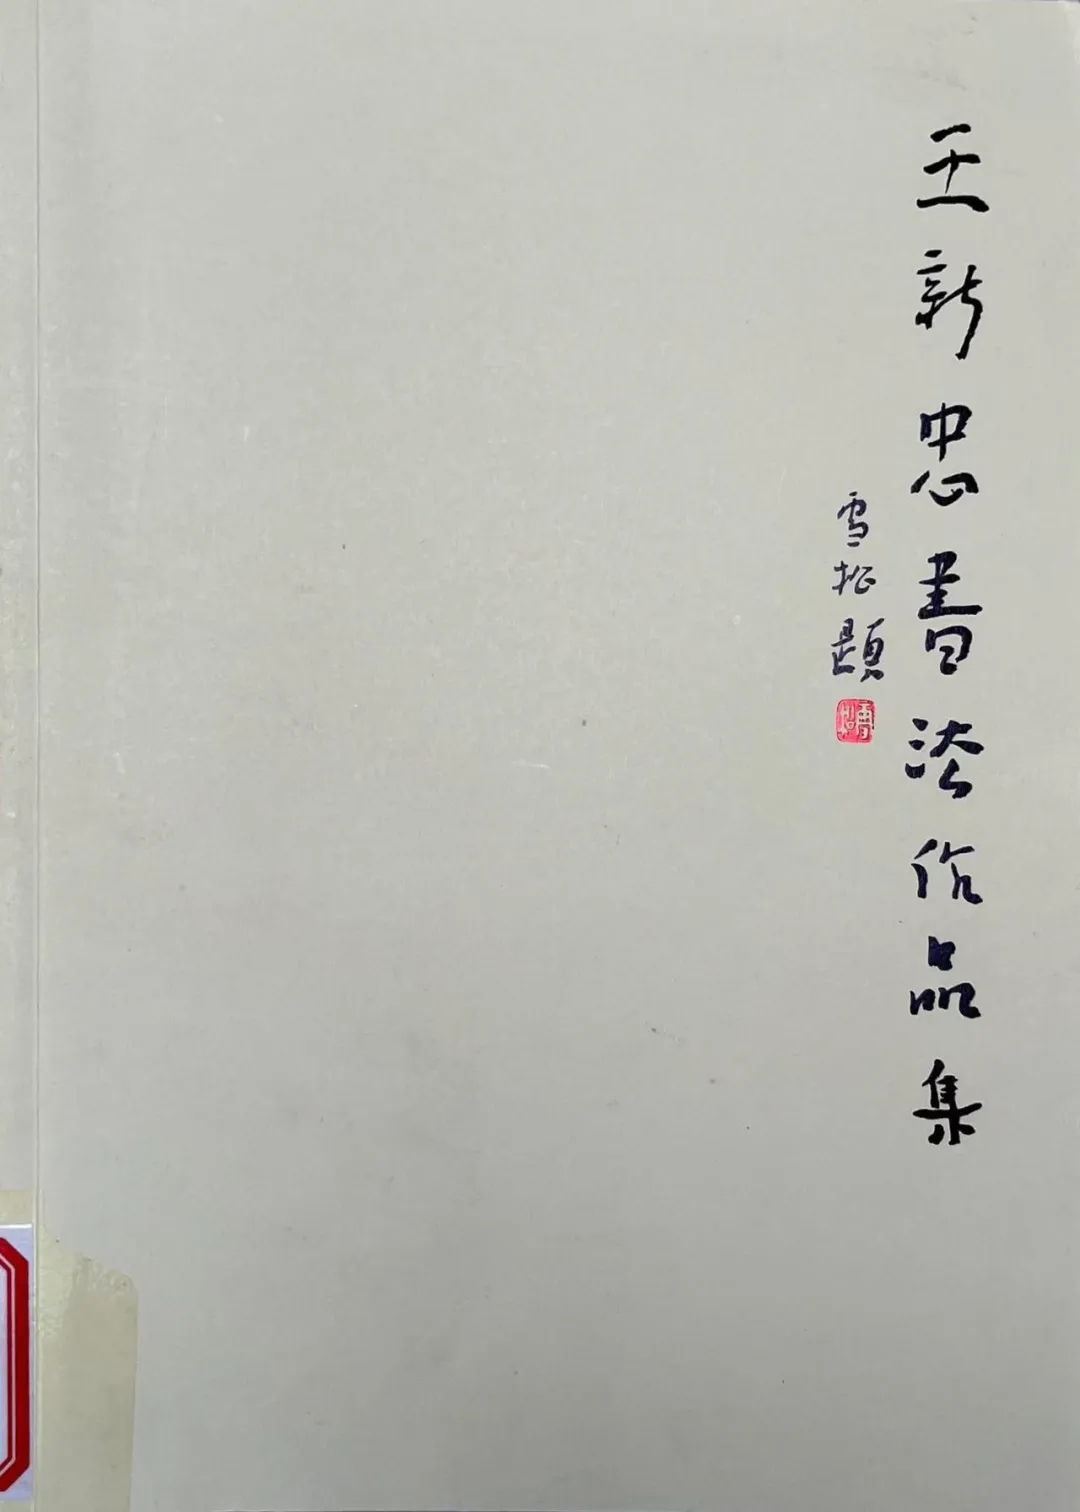 王新忠書法作品集
雪松題
雪松